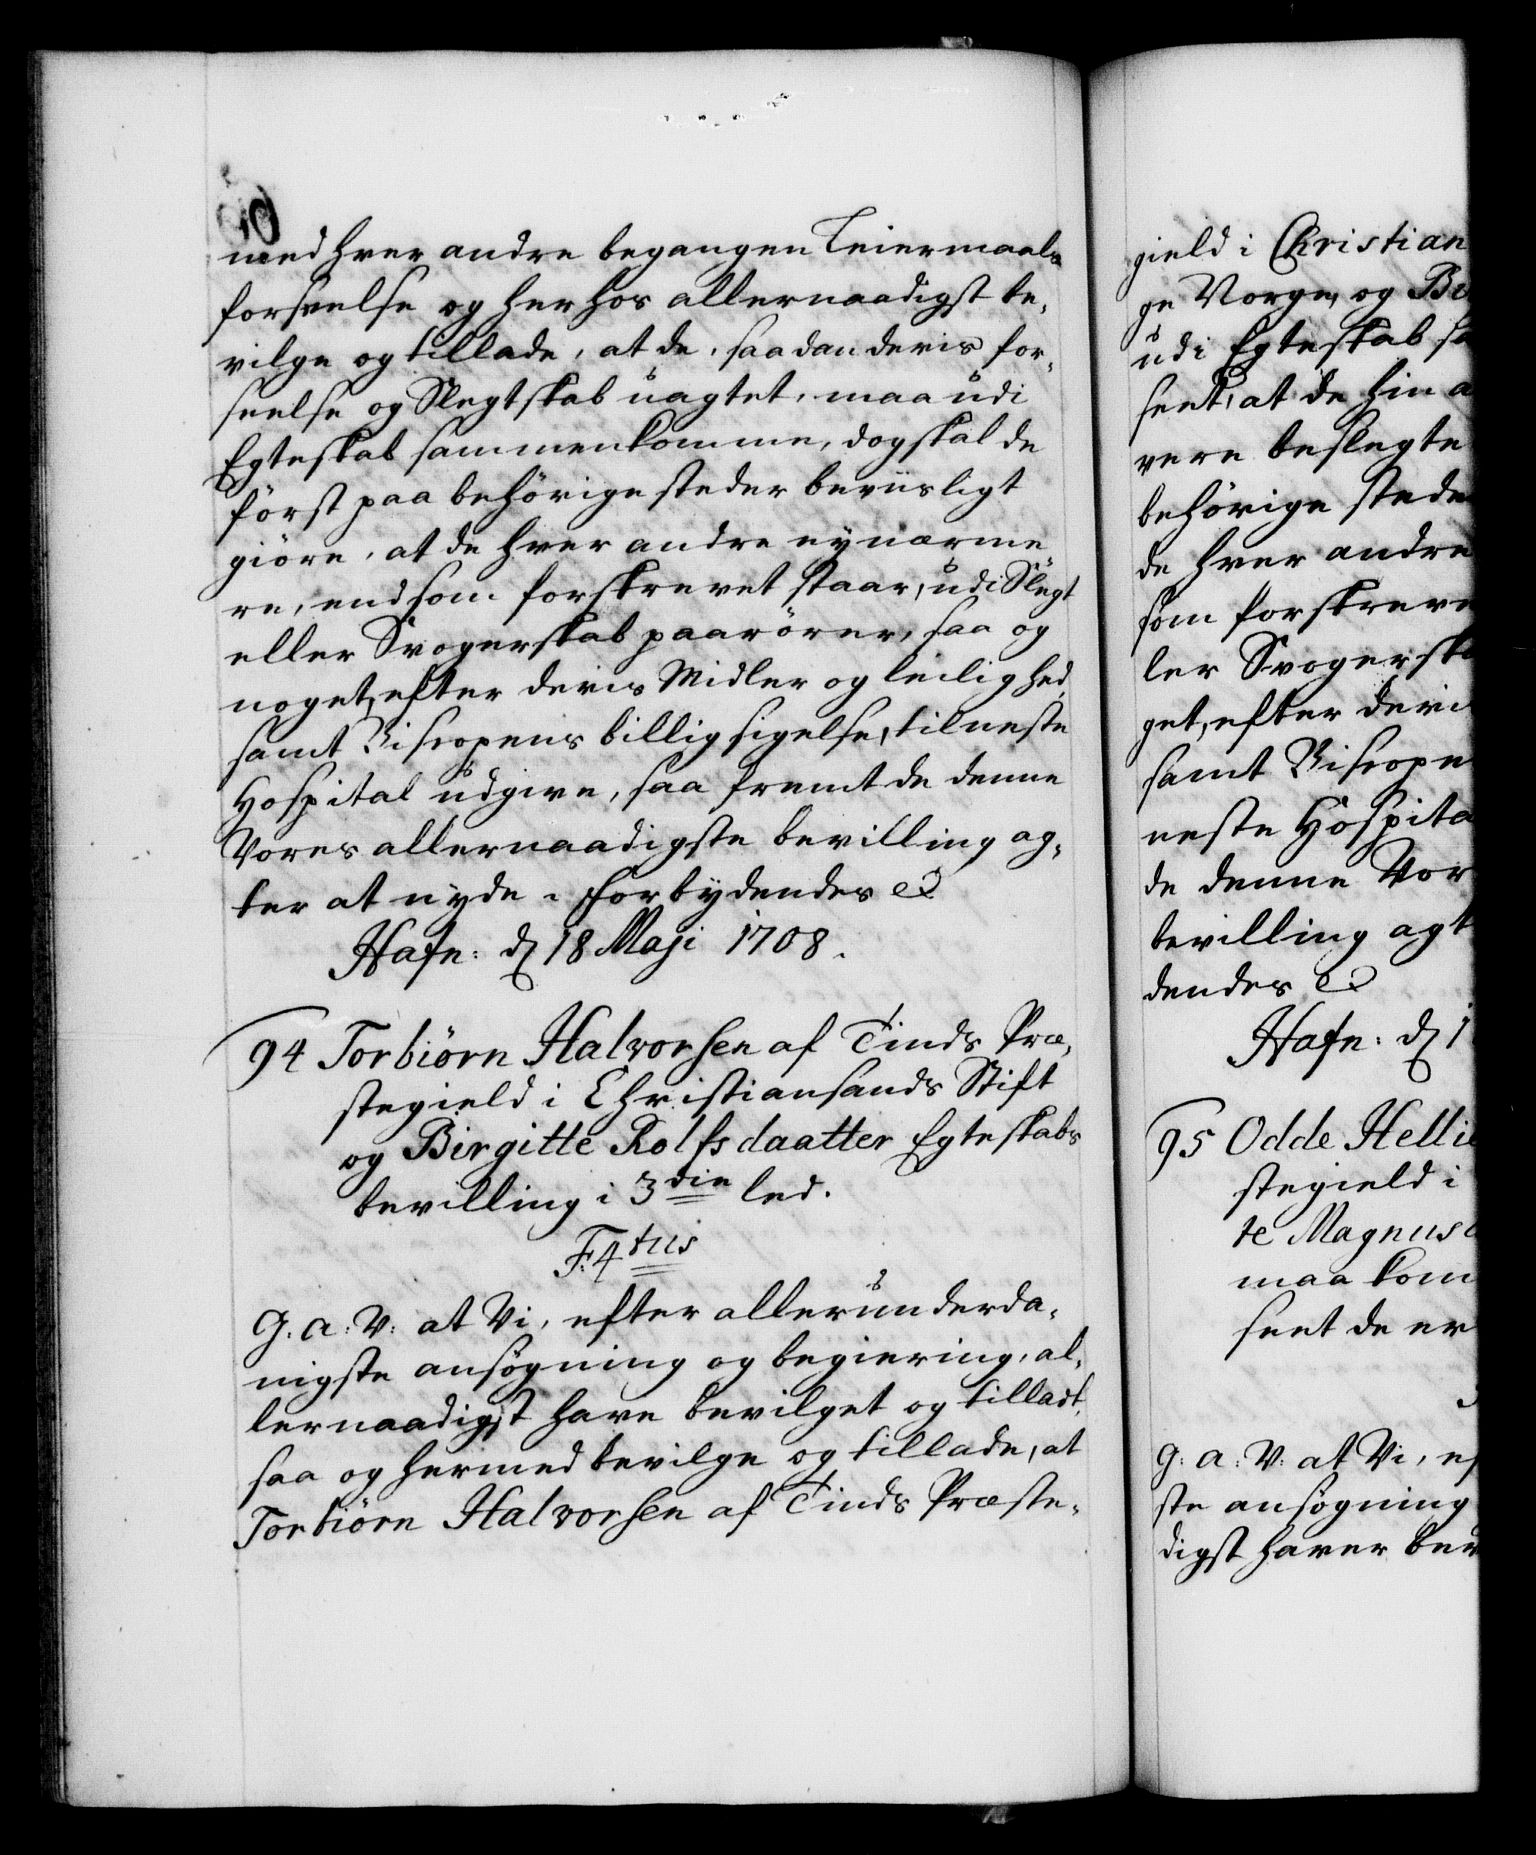 med hver andre begangen Leiermaals
forseelse og herhos allernaadigst be,
vilge og tillade, at de, saadan deris for,
seelse og Slegtskab uagtet, maa udi
Egteskab sammenkomme, dog skal de
först paa behörige steder beviisligt
giöre, at de hver andre ey nærme,
re, end som forskrevet staar, udi Slegt
eller Svogerskab paarörer, saa og
noget, efter deris Midler og leilighed,
samt Biscopens billig sigelse, til neste
Hospital udgive, saa fremt de denne
Vores allernaadigste bevilling ag,
ter at nyde. Forbydendes &
Hafn: d 18 Maji 1708.
94 Torbiörn Halvorsen af Tinds Præ,
stegield i Christiansands Stift
og Birgitte Rolfsdaatter Egteskabs
bevilling i 3die led.
F. 4tus
G. a: V: at Vi, efter allerunderda,
nigste ansögning og begiering, al,
lernaadigst have bevilget og tilladt,
saa og hermed bevilge og tillade, at
Torbiörn Halvorsen af Tinds Præste,
gield i Christian
ge Norge, og Bi
udi Egteskab sa
seet, at de hin a
vere beslegte
behörige stede
de hver andre
som forskreve
ler Svogerska
get, efter deris
samt Biscope
neste Hospita
de denne Vor
bevilling agt
dendes &
Hafn: d 1
95 Odde Hellie
stegield i
te Magnus
maa kom
seet de er
G: a: V: at Vi, ef
ste ansögning
digst haver bev